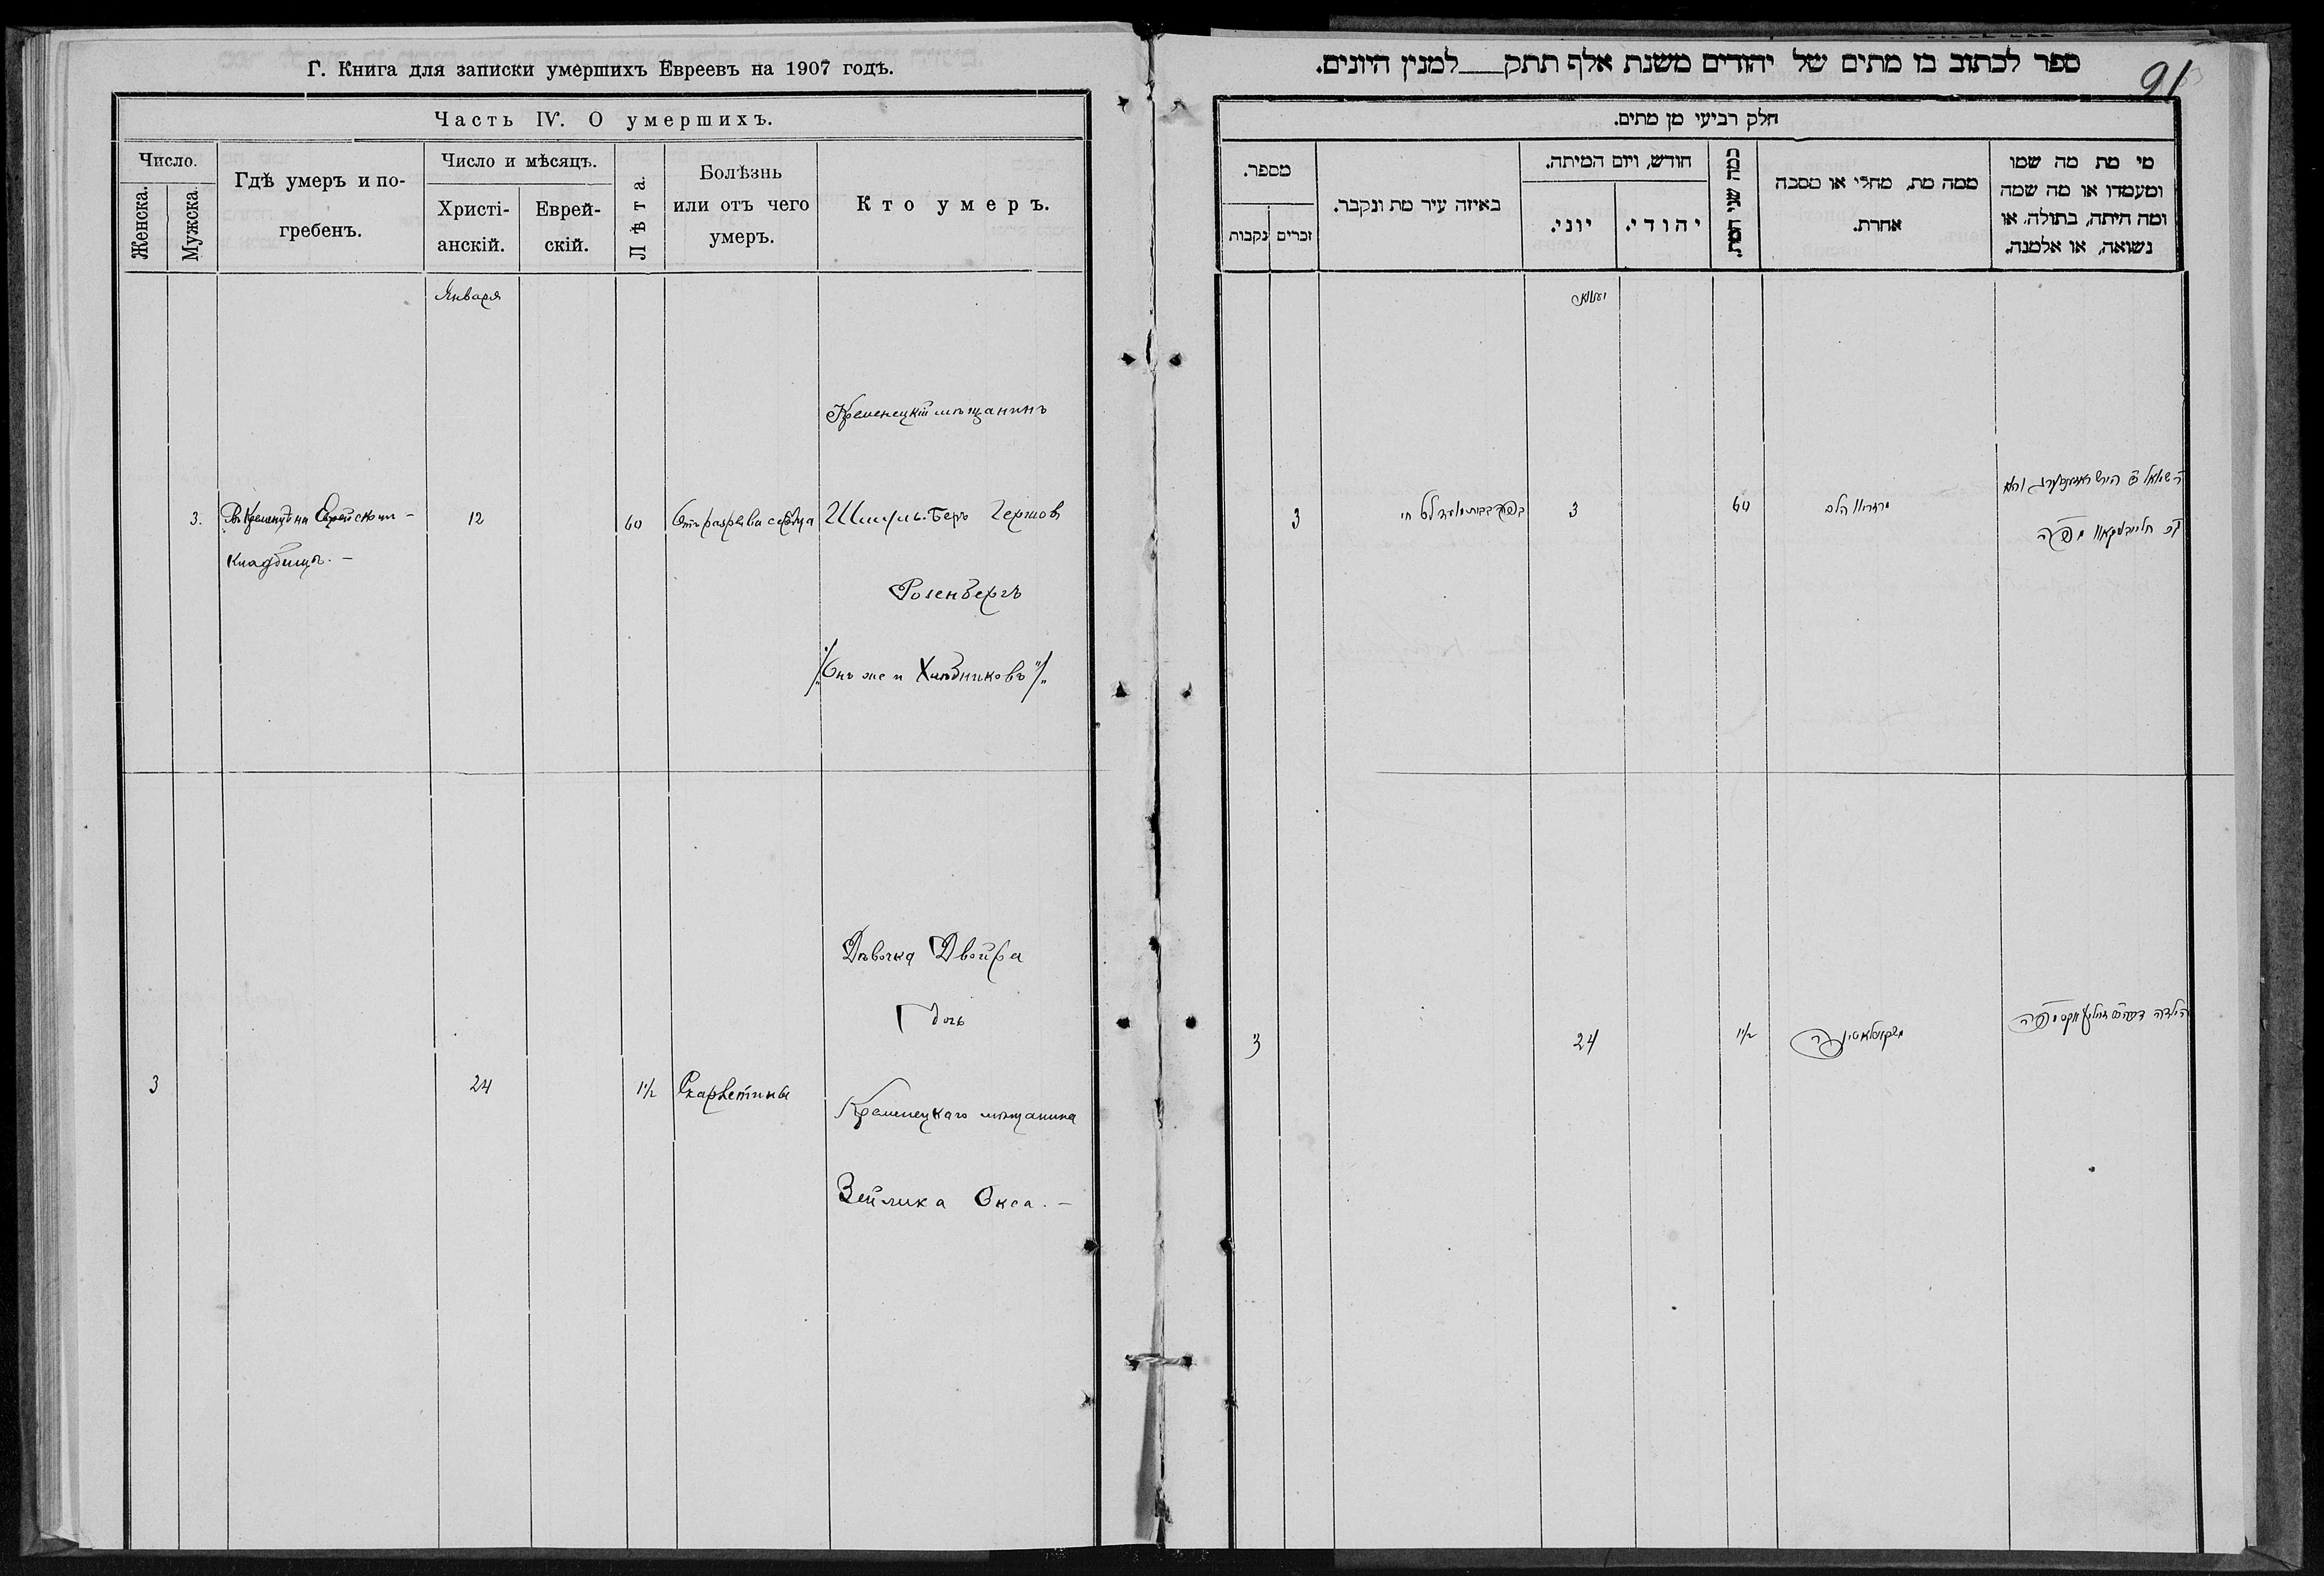 Г. Книга для записки умершихъ Евреевъ на 1907 годъ.
Часть IV. О умершихъ.
Число.
Женска.
Мужска.
Гдѣ умеръ и по-
гребенъ.
Число и мѣсяцъ.
Христі-
анскій.
Еврей-
скій.
Лѣта.
Болѣзнь
или отъ чего
умеръ.
Кто умеръ.
Января
Кременецкій мѣщанинъ
3. Въ Кременцѣ на Еврейскомъ - 12 60 Отъ разрыва сердца Шмуль-Беръ Гершов
кладбищѣ. -
Розенбергъ
"Онъ же и Хлѣбниковъ"
Дѣвочка Двойра
дочь
3 24 1½ Скарлетины
Кременецкаго мѣщанина
Зейлика Окса. -
ספר לכתוב בו מתים של יהודים משנת אלף תתק למנין היונים.
91
חלק רביעי מן מתים.
מספר.
זכרים
נקבות
באיזה עיר מת ונקבר.
חודש, ויום המיתה.
יוני.
יהודי.
כמה שני המת.
ממה מת, מחלי או מסבה
אחרת.
מי מת מה שמו
ומעמדו או מה שמה
ומה היתה, בתולה, או
נשואה, או אלמנה.
3 3 60
3 24 1½